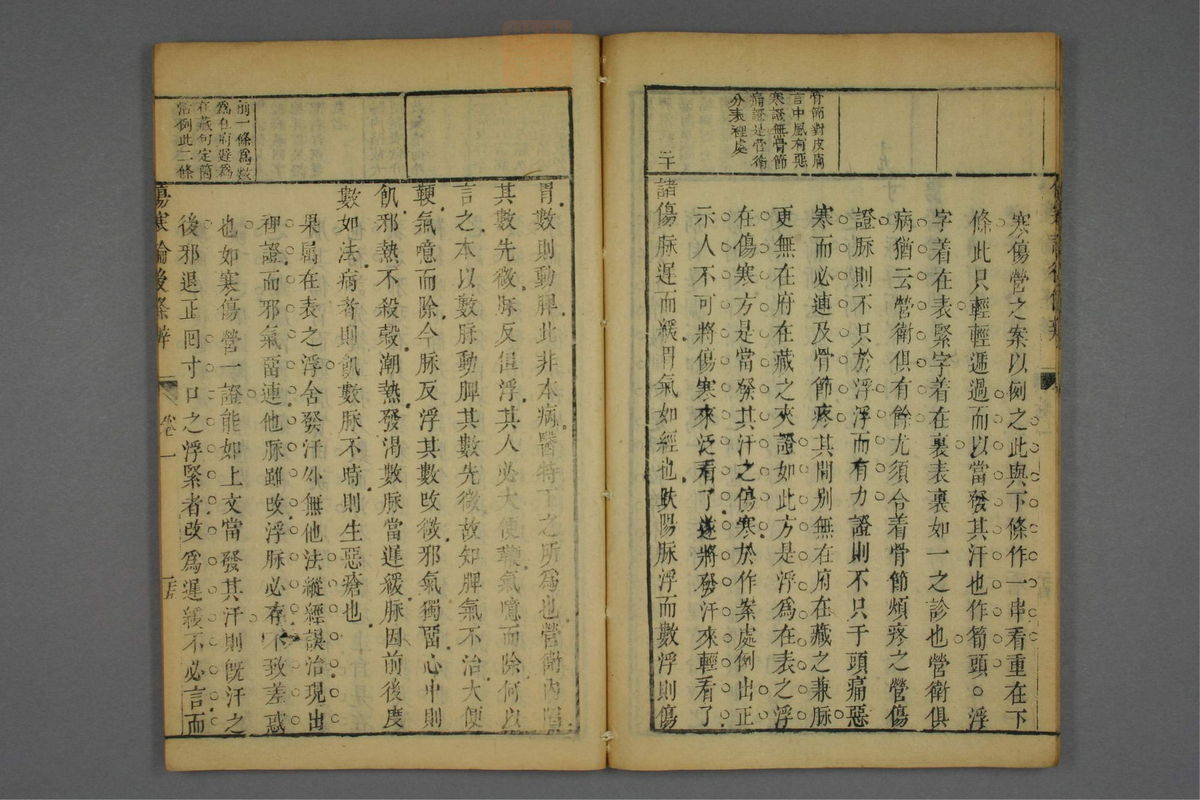 骨節對皮膚
言中風有惡
寒證無骨節
痛證是營衛
分表裡處
二十
寒傷營之案以例之此與下條作一串看重在下
條此只輕輕遞過而以當發其汗也作筍頭○浮
字着在表緊字着在裏表裏如一之診也營衛俱
病猶云營衛俱有餘尤須合着骨節煩疼之營傷
證脉則不只於浮浮而有力證則不只于頭痛惡
寒而必連及骨節疼其間别無在府在藏之兼脉
更無在府在藏之夾證如此方是浮爲在表之浮
在傷寒方是當發其汗之傷寒於作案處例出正
示人不可將傷寒來泛看了遂將發汗來輕看了
諸傷脉遲而緩胃氣如經也趺陽脉浮而數浮則傷
前一條爲數
爲在府遲爲
在藏句定箇
常例此二條
胃數則動脾此非本病醫特下之所爲也營衛內陷
其數先微脉反但浮其人必大便鞕氣噫而除何以
言之本以數脉動脾其數先微故知脾氣不治大便
鞕氣噫而除今脉反浮其數改微邪氣獨留心中則
飢邪熱不殺穀潮熱發渴數脉當遲緩脉因前後度
數如法病者則飢數脉不時則生惡瘡也
果属在表之浮舍發汗外無他法縱經誤治現出
裡證而邪氣留連他脉雖改浮脉必存不致差惑
也如寒傷營一證能如上文當發其汗則既汗之
後邪退正囘寸口之浮緊者改爲遲緩不必言而
傷寒論後條辨
卷一